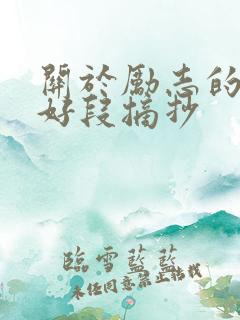 關於勵志的
好段摘抄
臨雪藍藍
未任同意禁止轉載